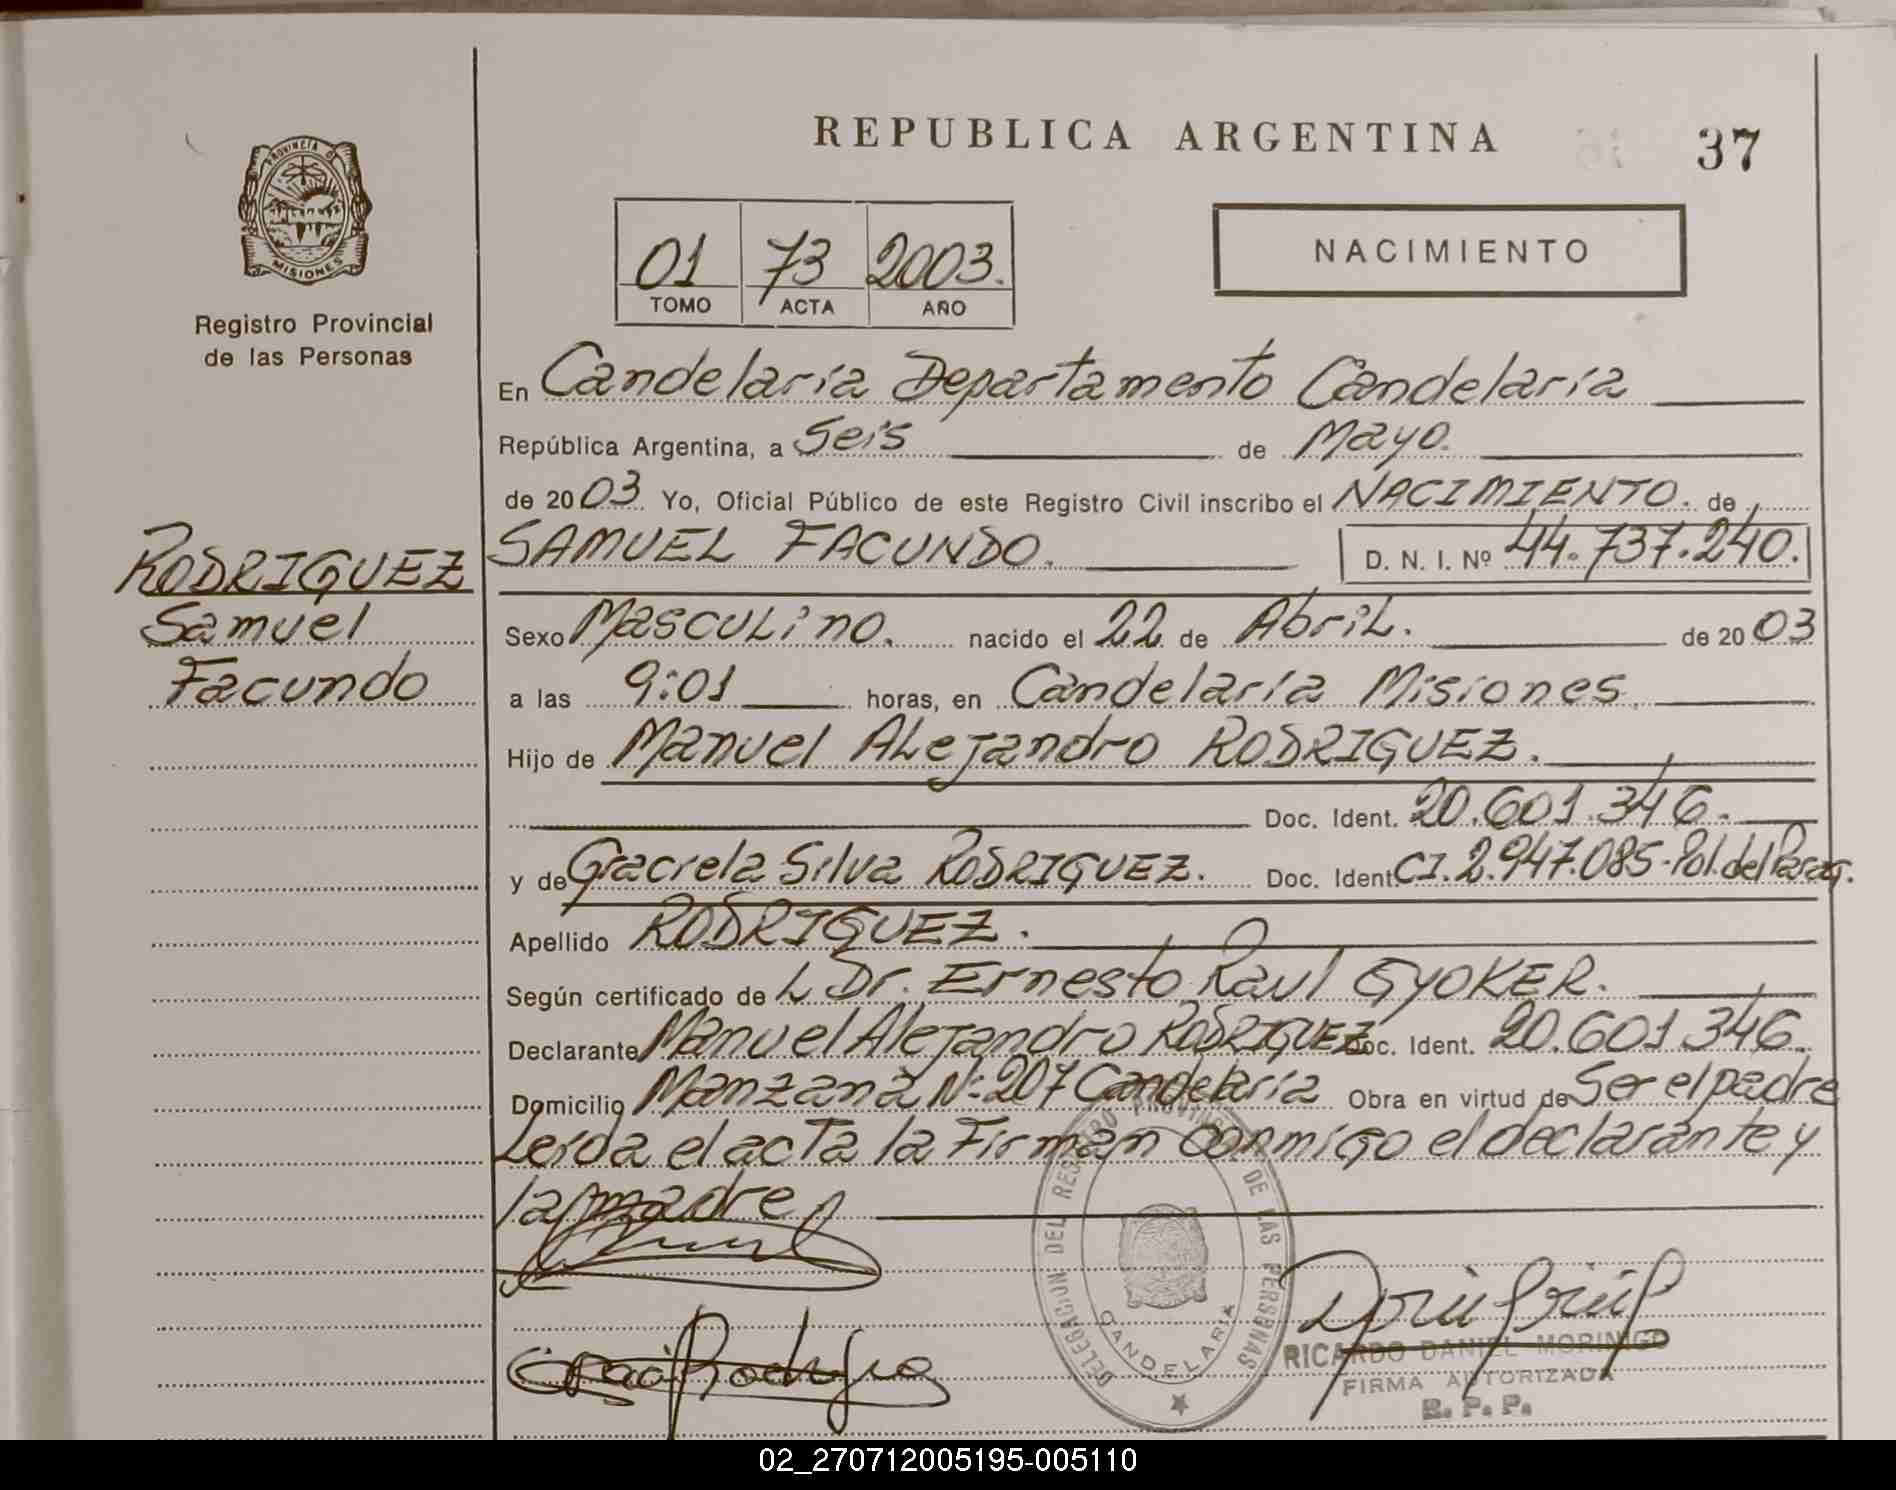 REPUBLICA ARGENTINA
37
PROVINCIA DE
MISIONES
Registro Provincial
de las Personas
01 73 2003.
TOMO ACTA AÑO
NACIMIENTO
En Candelaria Departamento Candelaria
República Argentina, a Seis de Mayo.
de 2003 Yo, Oficial Público de este Registro Civil inscribo el NACIMIENTO. de
RODRIGUEZ
Samuel
Facundo
SAMUEL FACUNDO. D. N. I. Nº 44.737.240.
Sexo Masculino. nacido el 22 de Abril. de 2003
a las 9:01 horas, en Candelaria Misiones.
Hijo de Manuel Alejandro RODRIGUEZ.
Doc. Ident. 20.601.346.
y de Graciela Silva RODRIGUEZ. Doc. Ident. CI. 2.947.085-Pol. del Parag.
Apellido RODRIGUEZ.
Según certificado de L Dr. Ernesto Raul GYOKER.
Declarante Manuel Alejandro RODRIGUEZ Doc. Ident. 20.601.346.
Domicilio Manzana Nº 207 Candelaria Obra en virtud de Ser el padre
Leída el acta la Firman conmigo el declarante y
la madre
DELEGACION DEL REGISTRO PROVINCIAL DE LAS PERSONAS
CANDELARIA
RICARDO DANIEL MORINIGO
FIRMA AUTORIZADA
R. P. P.
02_270712005195-005110